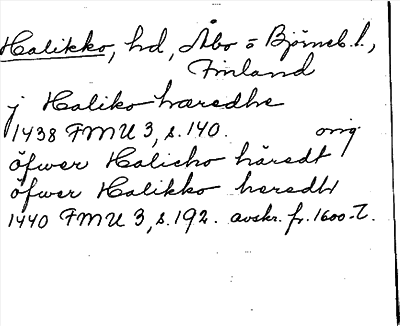 Halikko, hd, Åbo o Björneb. l.,
Finland
j Haliko hæredhe
1438 FMU 3, s. 140. orig
öfwer Halicho häredt
öfwer Halikko heredt
1440 FMU 3, s. 192. avskr. fr. 1600-t.